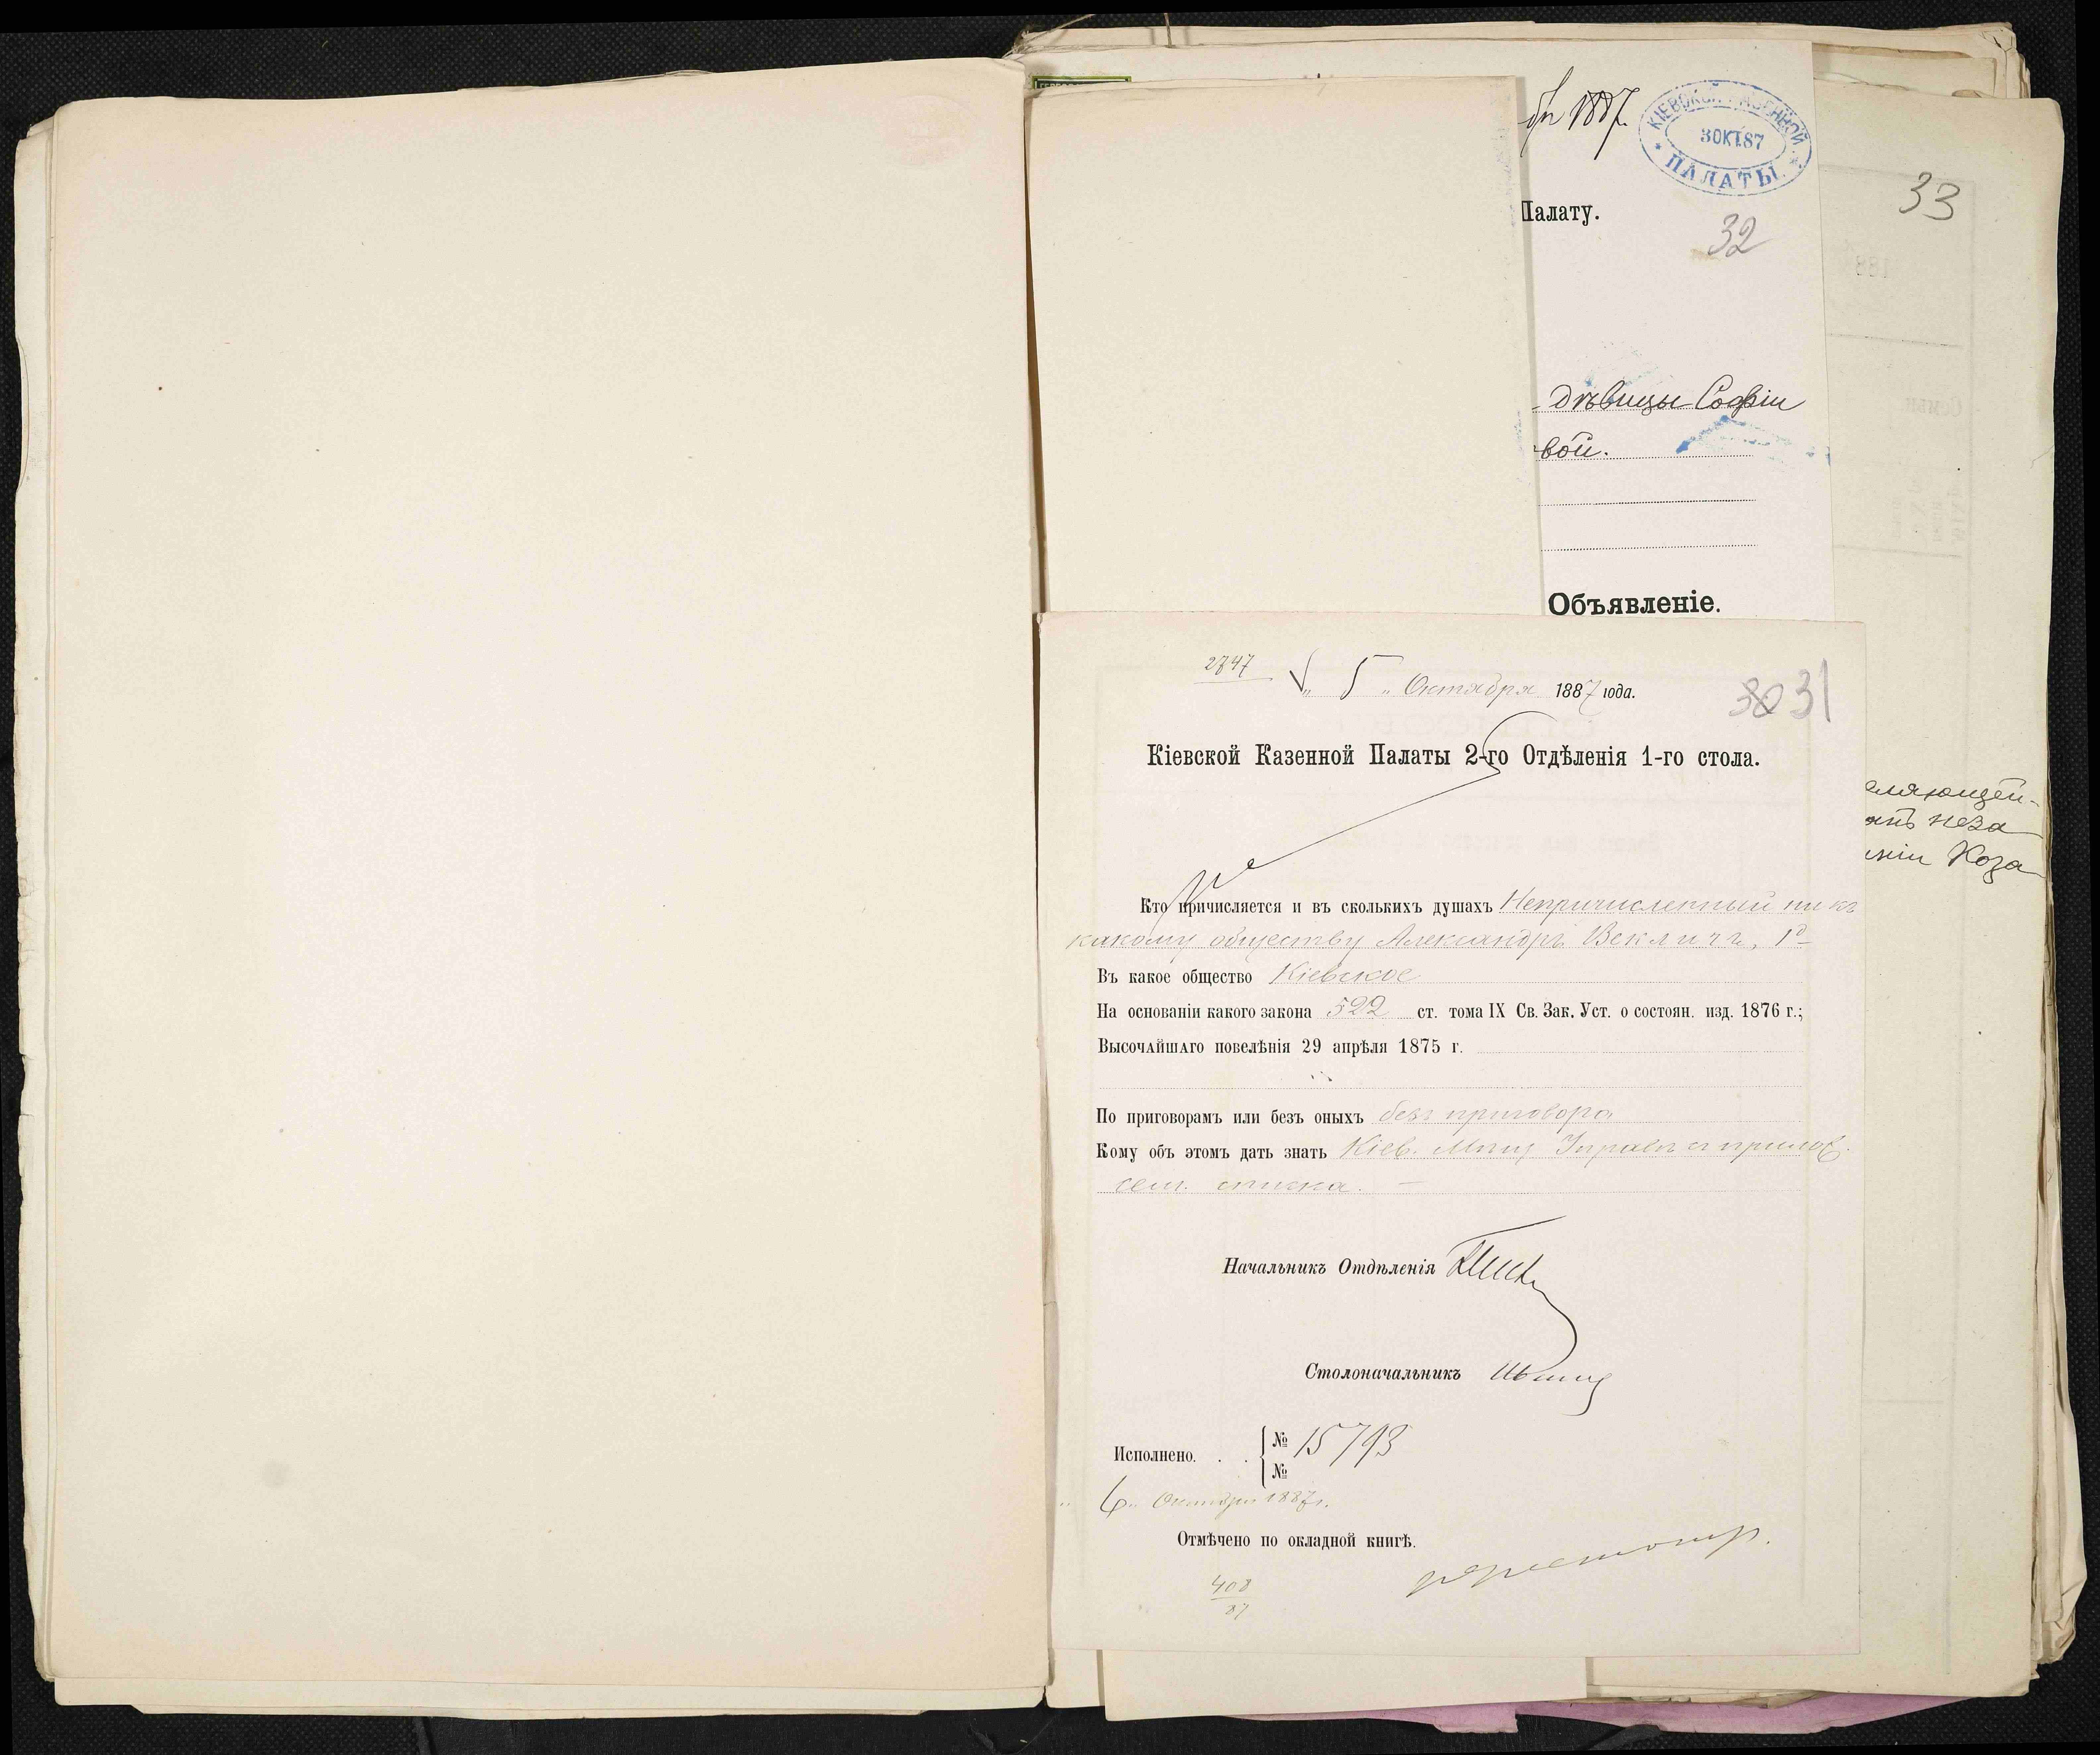 1887
КІЕВСКОЙ КАЗЕННОЙ
3 ОКТ. 87
ПАЛАТЫ.
Палату.
32
33
дѣвицы Софіи
вой.
Объявленіе.
еляющей-
неза
Коза
2847
„ 5 „ Октября 1887 года.
30 31
Кіевской Казенной Палаты 2-го Отдѣленія 1-го стола.
Кто причисляется и въ сколькихъ душахъ Непричисленный ни къ
какому обществу Александръ Векличъ, 1
Въ какое общество Кіевское
На основаніи какого закона 522 ст. тома IX Св. Зак. Уст. о состоян. изд. 1876 г.;
Высочайшаго повелѣнія 29 апрѣля 1875 г.
По приговорамъ или безъ оныхъ безъ приговора
Кому объ этомъ дать знать Кіев. Мѣщ. Управѣ съ прилож.
сем. списка. —
Начальникъ Отдѣленія
Столоначальникъ
Исполнено. . . { № 15793
№
„ 6 „ Октября 1887 г.
Отмѣчено по окладной книгѣ.
408
87